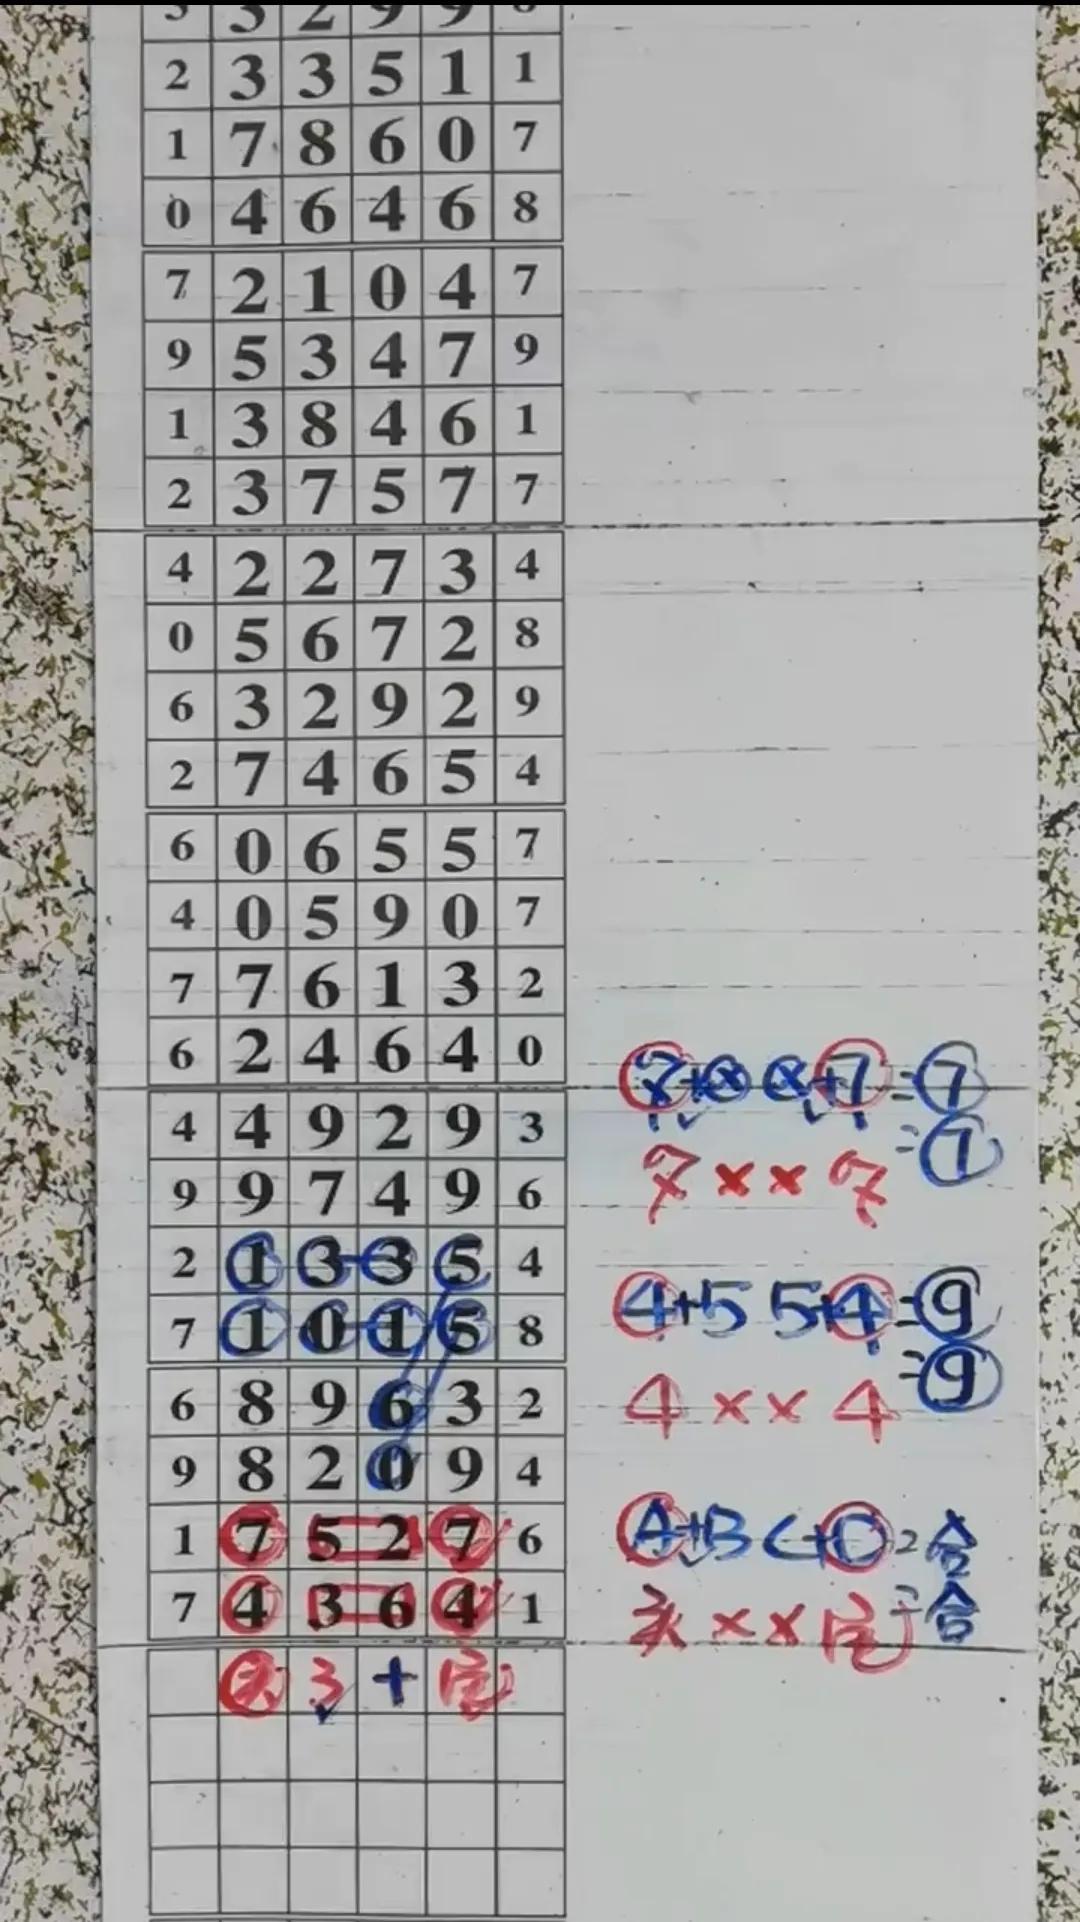 3 3 2 9 9
2 3 3 5 1 1
1 7 8 6 0 7
0 4 6 4 6 8
7 2 1 0 4 7
9 5 3 4 7 9
1 3 8 4 6 1
2 3 7 5 7 7
4 2 2 7 3 4
0 5 6 7 2 8
6 3 2 9 2 9
2 7 4 6 5 4
6 0 6 5 5 7
4 0 5 9 0 7
7 7 6 1 3 2
6 2 4 6 4 0
4 4 9 2 9 3
9 9 7 4 9 6
2 1 3 3 5 4
7 1 0 1 5 8
6 8 9 6 3 2
9 8 2 0 9 4
1 7 5 2 7 6
7 4 3 6 4 1
3 +
=7
7 × × 7
4+5 5+4=9
=9
4 × × 4
A+B C+D=合
头 × × =合